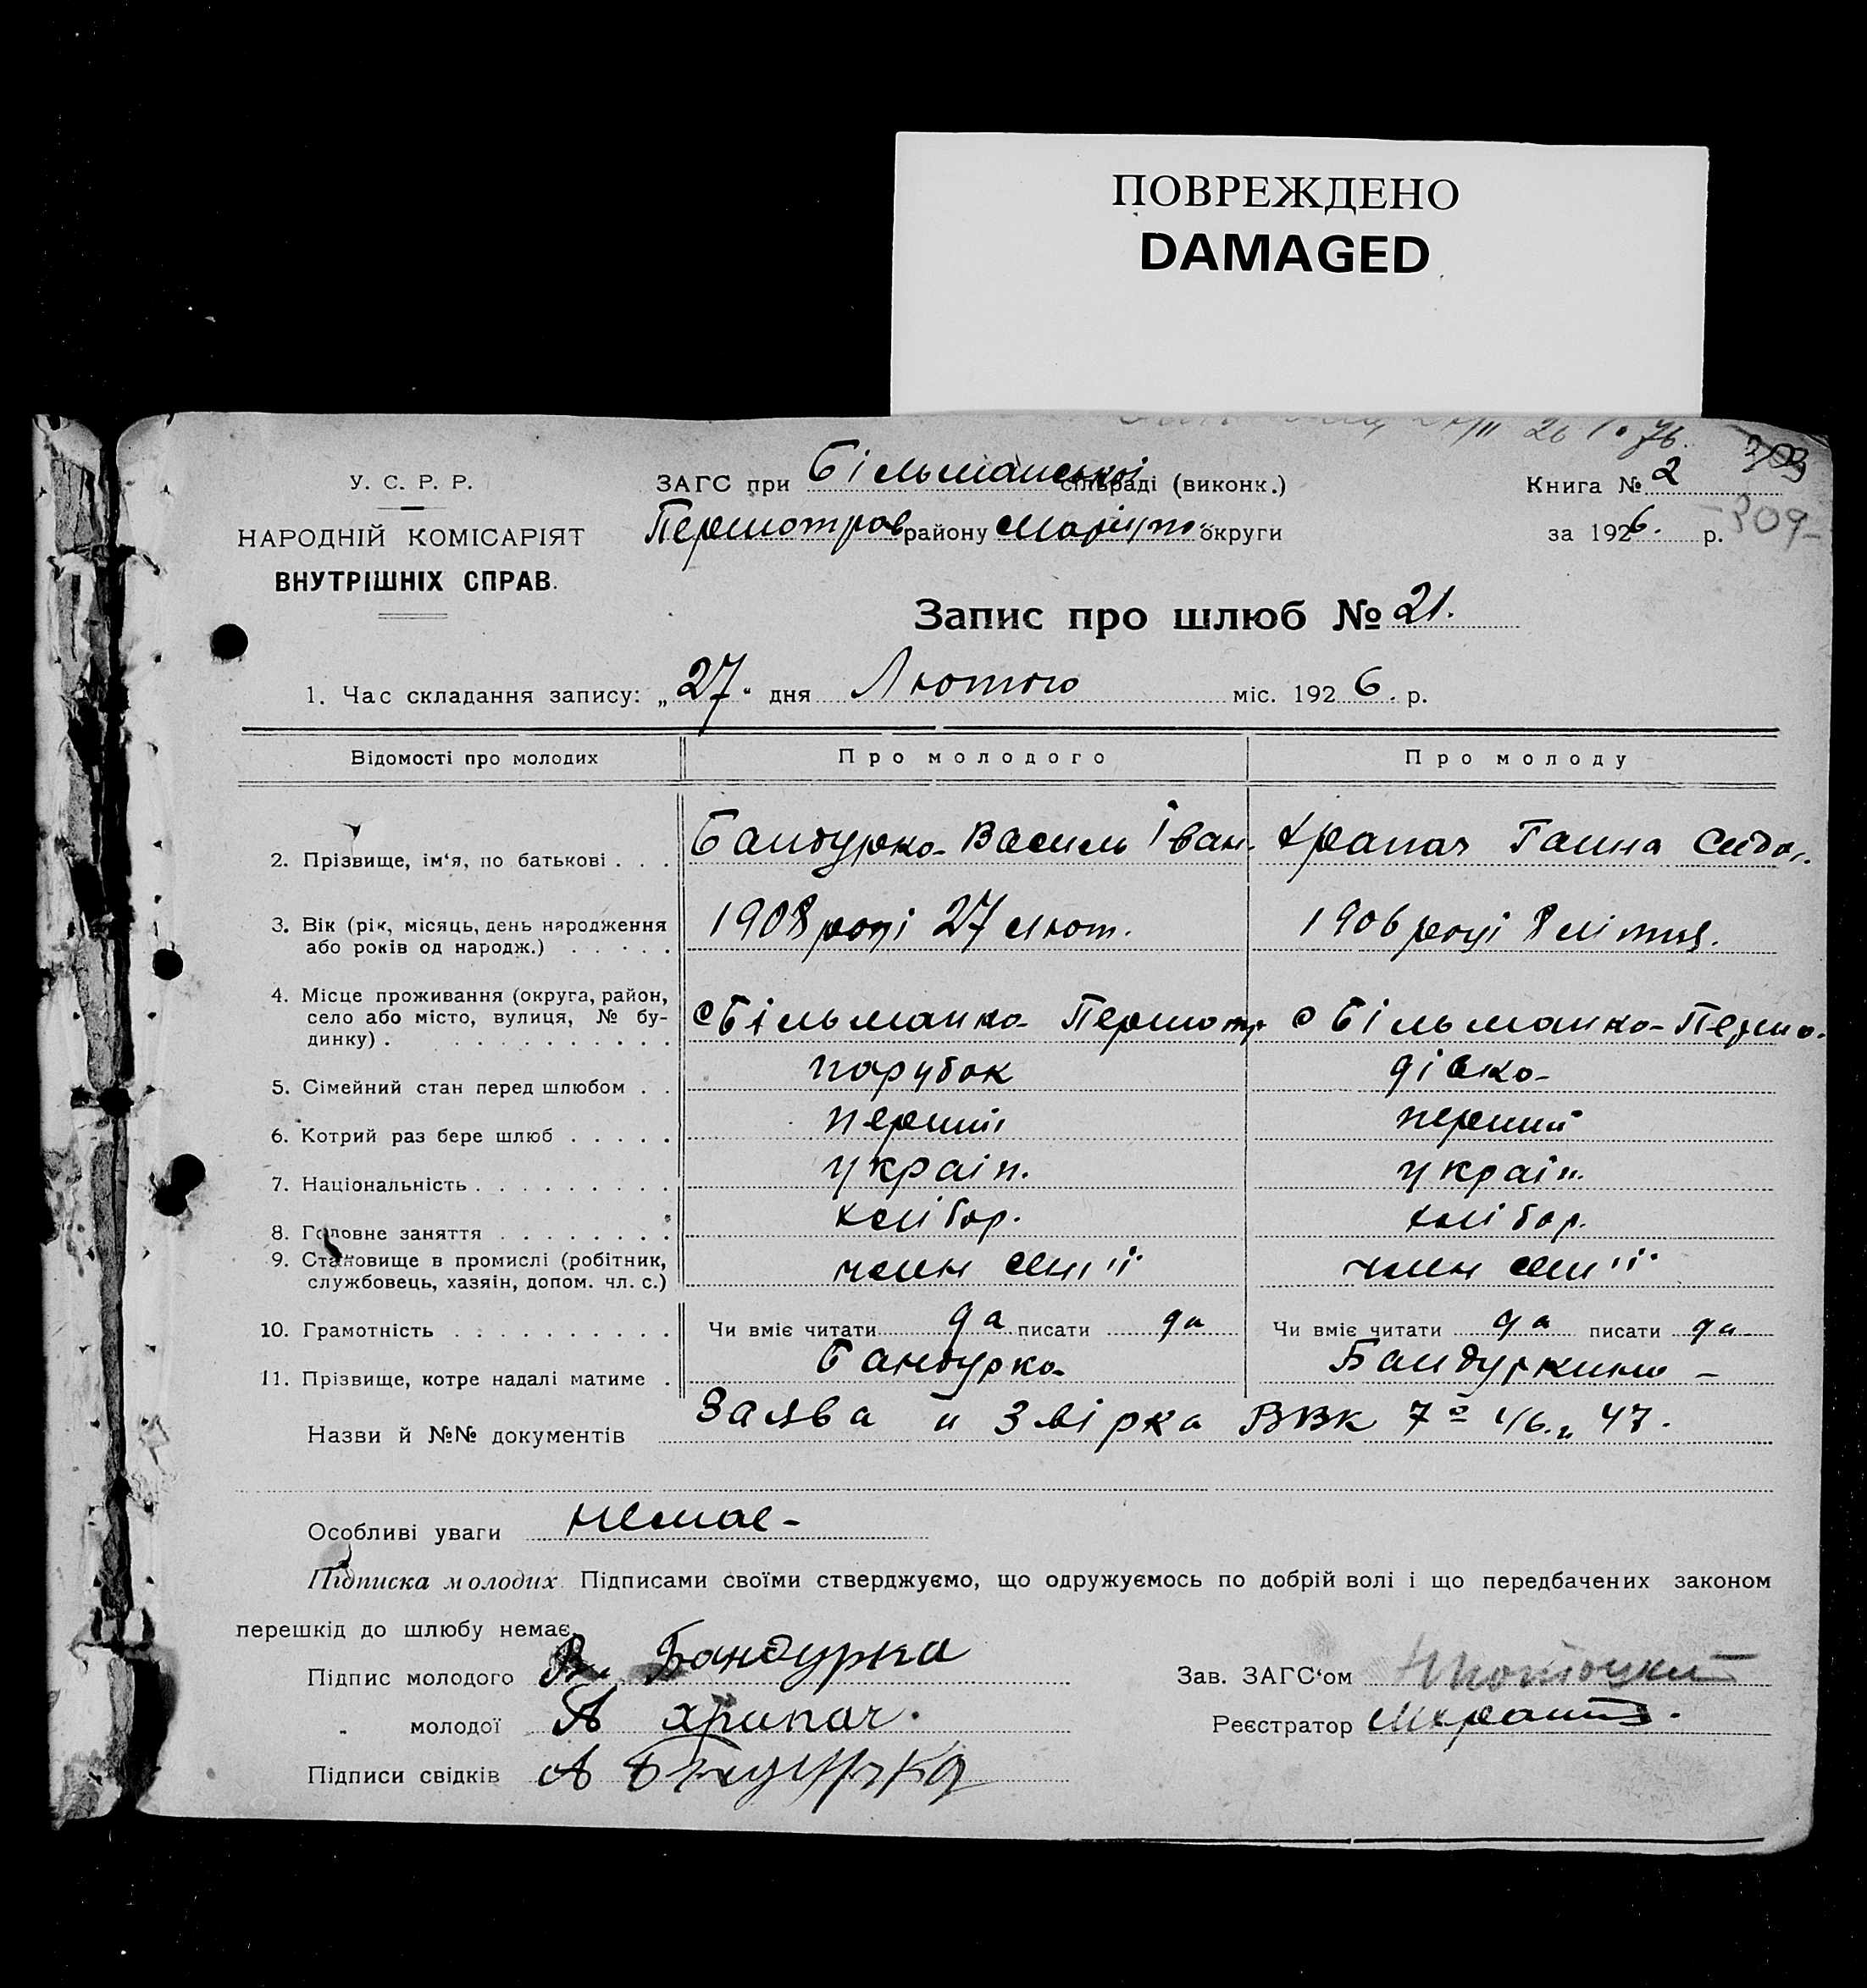 ПОВРЕЖДЕНО
DAMAGED
У. С. Р. Р.
НАРОДНІЙ КОМІСАРІЯТ
ВНУТРІШНІХ СПРАВ.
ЗАГС при Більманської сільраді (виконк.)
Першотров району Маріуп. округи
Книга № 2
за 1926. р.
309
Запис про шлюб № 21.
1. Час складання запису: „27“ дня Лютого міс. 1926. р.
Відомості про молодих Про молодого Про молоду
2. Прізвище, ім‘я, по батькові . . . Бандурка Василь Іван. Храпач Ганна Сидо.
3. Вік (рік, місяць, день народження
або років од народж.) . . . . . 1908 році 27 лют. 1906 році 8 літня.
4. Місце проживання (округа, район,
село або місто, вулиця, № бу-
динку) . . . . . . . . . . . с Більманка Першотр с Більманка Першо.
5. Сімейний стан перед шлюбом . . парубок дівка
6. Котрий раз бере шлюб . . . . . перший перший
7. Національність . . . . . . . . . україн. україн.
8. Головне заняття . . . . . . . . хлібор. хлібор.
9. Становище в промислі (робітник,
службовець, хазяін, допом. чл. с.) член сем'ії член сем'ії
10. Грамотність . . . . . . . . . . Чи вміє читати да писати да Чи вміє читати да писати да
11. Прізвище, котре надалі матиме . Бандурка Бандуркина
Назви й №№ документів Заява и Звірка ВВК 7 47.
Особливі уваги немає
Підписка молодих. Підписами своїми стверджуємо, що одружуємось по добрій волі і що передбачених законом
перешкід до шлюбу немає.
Підпис молодого В. Бандурка
Зав. ЗАГС‘ом
„ молодої А Храпач.
Реєстратор
Підписи свідків А Бандурка